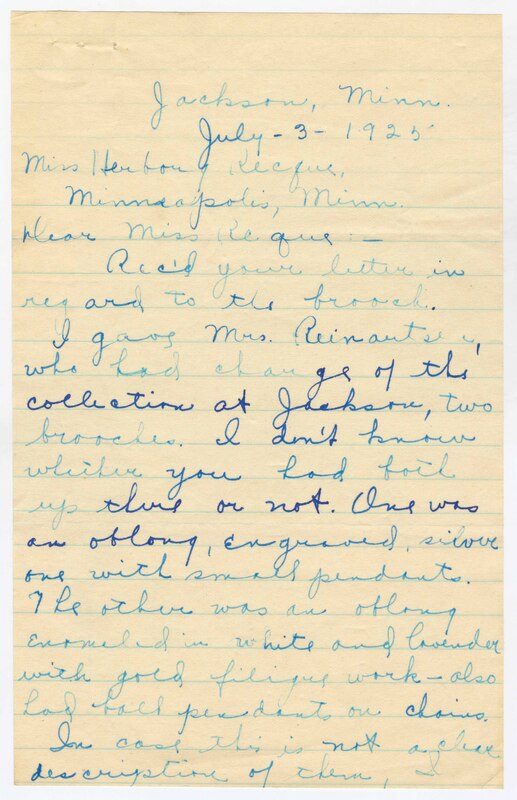 Jackson, Minn.
July-3-1925
Miss Herborg Recque,
Minneapolis, Minn.
Dear Miss Reque:-
Rec'd your letter in
regard to the brooch.
I gave Mrs.
who had charge of the
collection at Jackson, two
brooches. I don't know
whether you had both
up there or not. One was
an oblong, engraved, silver
one with small pendants.
The other was an oblong
enameled in white and lavender
with gold filigre work - also
had ball pendants on chains.
In case this is not a clear
description of them, I